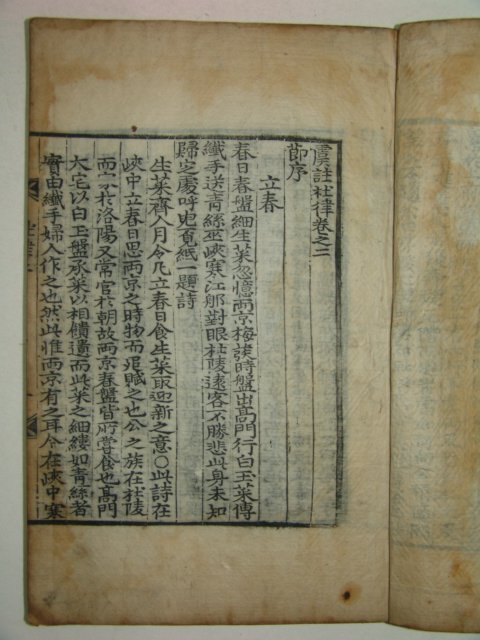 虞註杜律卷之二
節序
立春
春日春盤細生菜忽憶兩京梅發時盤出髙門行白玉菜傳
纖手送青絲巫峽寒江那對眼杜陵遠客不勝悲此身未知
歸定處呼兒覓紙一題詩
生菜齊人月令凡立春日食生菜取迎新之意〇此詩在
峽中立春日思兩京之時物而追賦之也公之族在杜陵
而家於洛陽又常官於朝故兩京春盤皆所嘗食也髙門
大宅以白玉盤承菜以相饋遺而此菜之細縷如青絲者
實由纖手婦人作之也然此惟兩京有之耳今在峽中寒